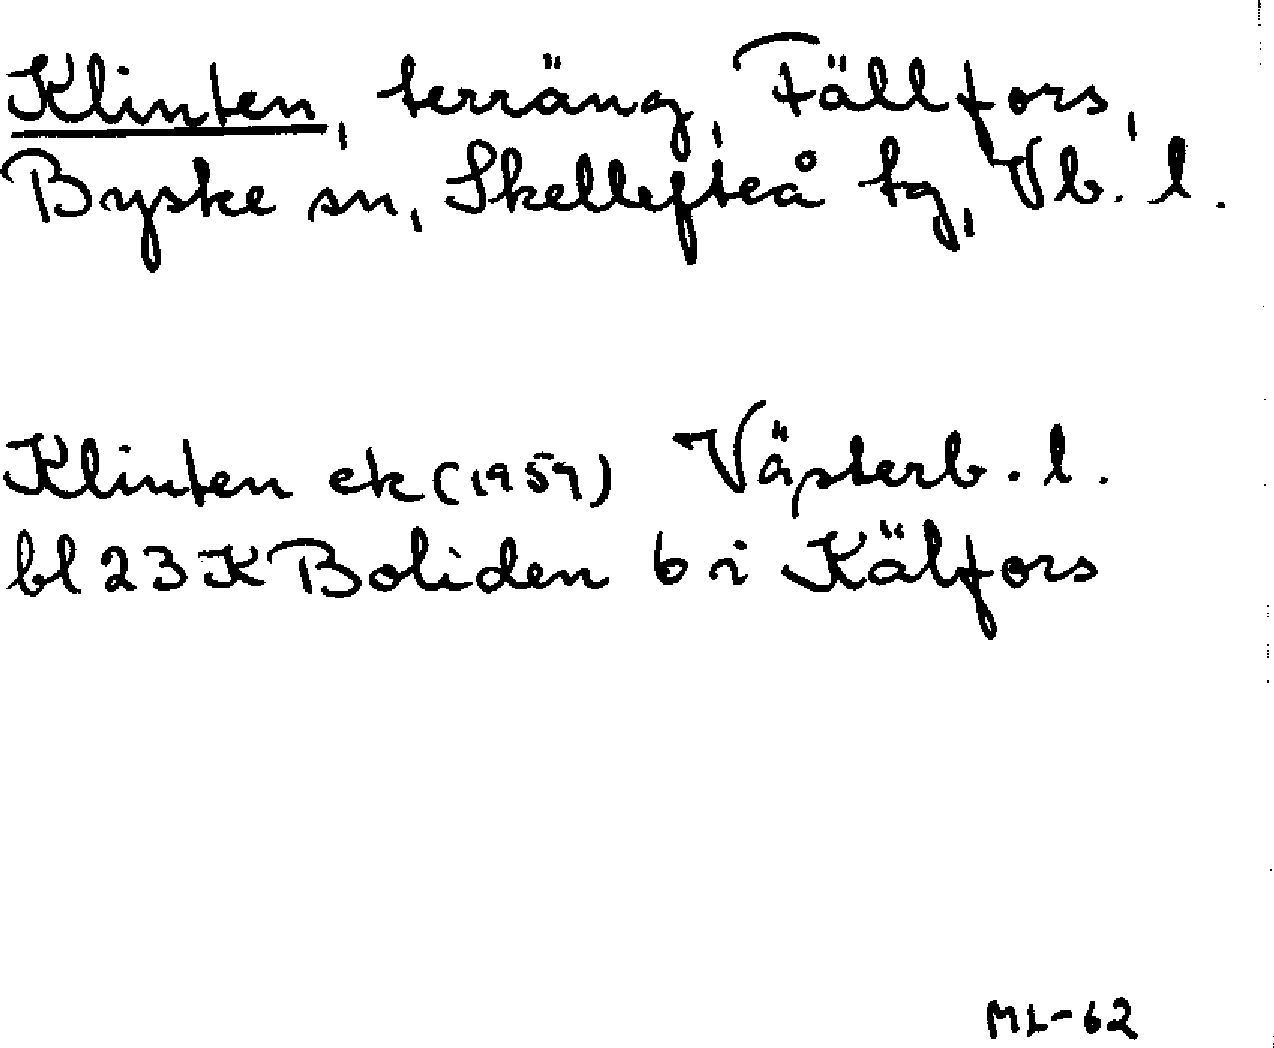 Klinten, terräng, Fällfors,
Byske sn, Skellefteå tg, Vb. l.
Klinten ek (1959) Västerb. l.
bl 23 K Boliden 6 i Kälfors
ML-62